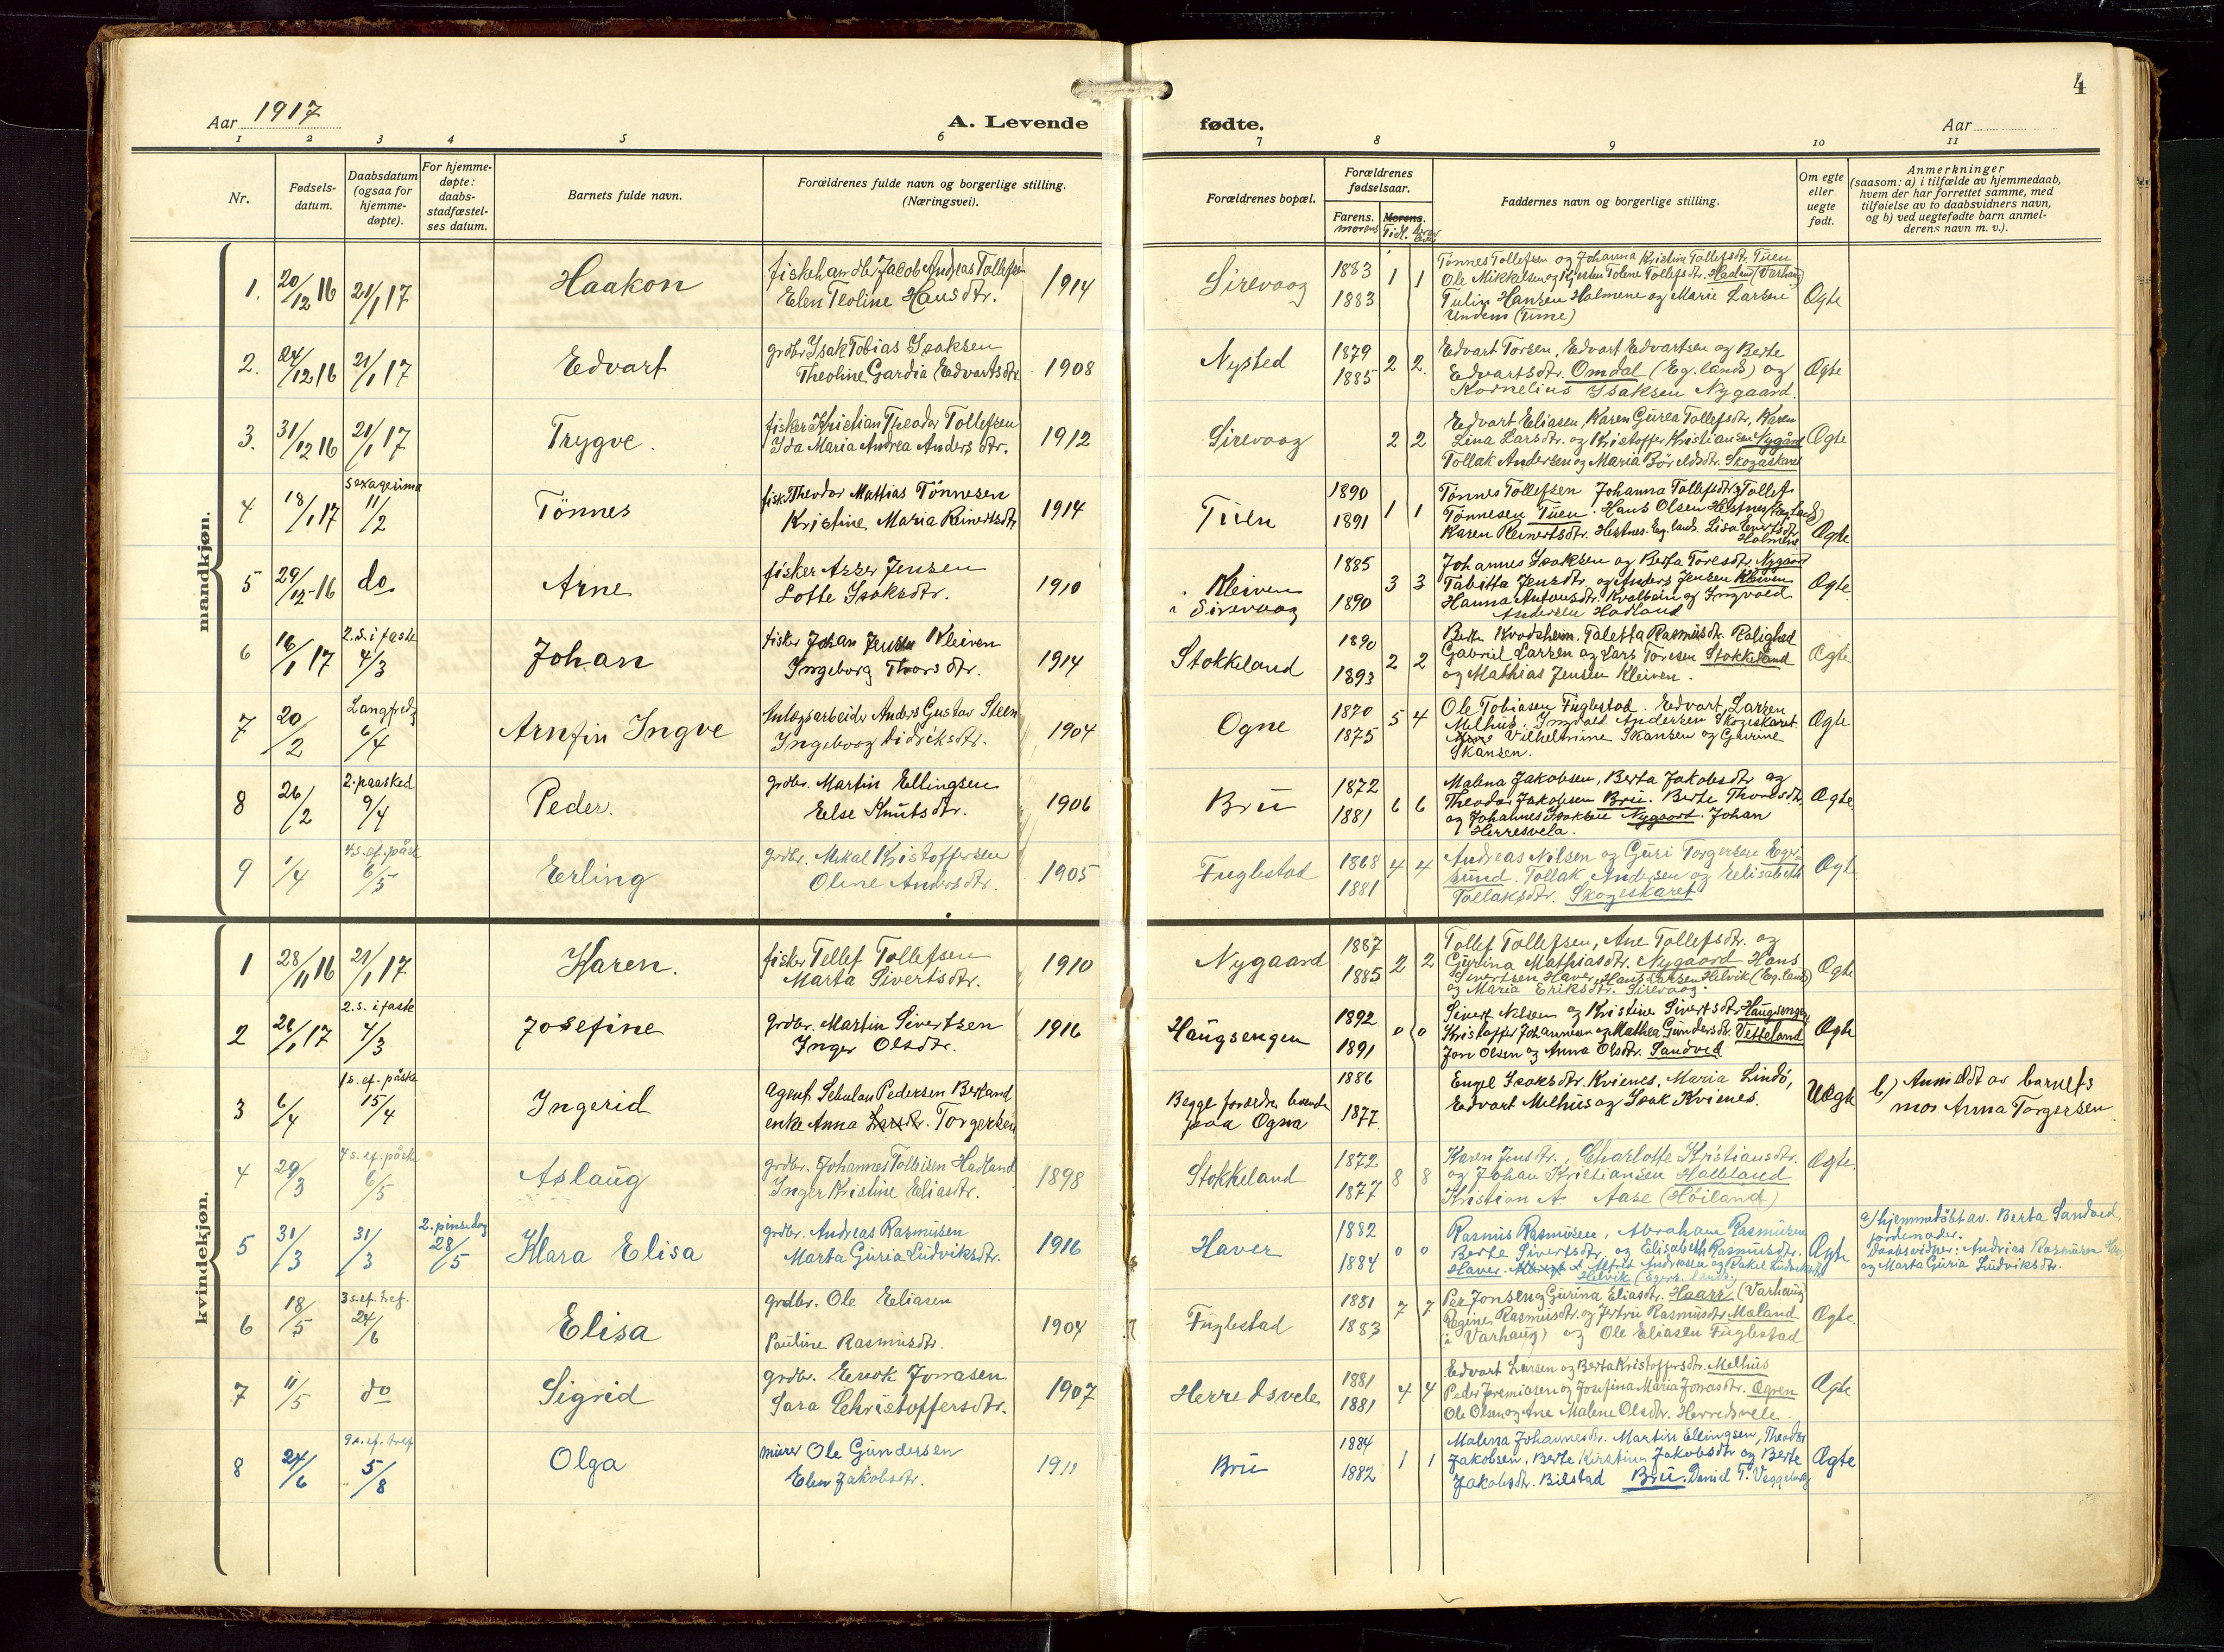 4
Aar 1917
A. Levende
fødte.
Aar
1 2 3 4 5 6 7 8 9 10 11
Nr.
Fødsels-
datum.
Daabsdatum
(ogsaa for
hjemme-
døpte).
For hjemme-
døpte:
daabs-
stadfæstel-
ses datum.
Barnets fulde navn.
Forældrenes fulde navn og borgerlige stilling.
(Næringsvei).
Forældrenes bopæl.
Forældrenes
fødselsaar.
Farens. Morens.
morens Tidl.
Faddernes navn og borgerlige stilling.
Om egte
eller
uegte
født.
Anmerkninger
(saasom: a) i tilfælde av hjemmedaab,
hvem der har forrettet samme, med
tilføielse av to daabsvidners navn,
og b) ved uegtefødte barn anmel-
derens navn m. v.).
mandkjøn.
1. 20/12 16 21/1 17 Haakon
fiskehandler Jacob Andreas Tollefsen
Elen Teoline Hansdtr. 1914
Sirevaag 1883 1883 1 1
Tønnes Tollefsen og Johanna Kristine Tollefsdtr. Tuen
Ole Mikkelsen og Kirsten Tolene Tollefsdtr. (Varhaug)
Hansen Holmene og Marie Larsen
(Time)
Ægte
2. 24/12 16 21/1 17 Edvart
grdbr Isak Tobias Isaksen
Theoline Gardia Edvartsdtr 1908
Nysted 1879 1885 2 2.
Edvart Torsen, Edvart Edvartsen og Berte
Edvartsdtr. Omdal (Eg. lands) og
Kornelius Isaksen Nygaard.
Ægte
3. 31/12 16 21/1 17 Trygve.
fisker Kristian Theodor Tollefsen
Ida Maria Andrea Andersdtr. 1912
Sirevaag 2 2
Edvart Eliasen, Karen Gurea Tollefsdtr, Karen
Lina Larsdtr. og Kristoffer Kristiansen Nygård
Tollak Andersen og Maria Skogaskaret
Ægte
4 18/1 17 sexagesima 11/2 Tönnes
fisk. Theodor Mathias Tönnesen
Kristine Maria Reinertsdtr 1914
Tuen 1890 1891 1 1
Tönnes Tollefsen Johanna Tollefsdtr Tollef
Tönnesen Tuen. Hans Olsen Hestnes (Eg. Land)
Karen Reinertsdtr. Hestnes. Eg. land. Lisa
Holmene
Ægte
5 29/12-16 do Arne
fisker Asser Jensen
Lotte Isaksdtr. 1910
Kleiven
i Sirevaag 1885 1890 3 3
Johannes Isaksen og Berta Toresdtr. Nygaard
Tabitta Jensdtr. og Anders Jensen Kleiven
Hanna Antonsdtr. Kvalbein og Ingvald
Andersen Hadland
Ægte
6 16/1 17 2.s. i faste 4/3 Johan
fisker Johan Jensen Kleiven
Ingeborg Thorsdtr. 1914
Stokkeland 1890 1893 2 2
Berte Kvodsheim. Taletta Rasmusdtr. Rolighed
Gabriel Larsen og Lars Toresen Stokkeland
og Mathias Jensen Kleiven.
Ægte
7 20/2 Langfred. 6/4 Arnfin Ingve
Anlægsarbeider Anders Gustav Steen
Ingeborg Didriksdtr. 1904
Ogne 1870 1875 5 4
Ole Tobiasen Fuglestad. Edvart Larsen
Melhus. Ingvald Andersen Skogaskaret.
Vilhelmine Skansen og Gurine
Skansen.
Ægte
8 26/2 2. paasked 9/4 Peder.
grdbr. Martin Ellingsen
Else Knutsdtr. 1906
Bru 1872 1881 6 6
Malena Jakobsen, Berta Jakobsdtr og
Theodor Jakobsen Bru. Berte Thoresdtr,
og Johannes Isaksen Nygaard. Johan
Herresvela.
Ægte
9 1/4 4 s. ef. påsk 6/5 Erling
grdbr. Mikal Kristoffersen
Oline Andersdtr. 1905
Fuglestad 1868 1881 4 4
Andreas Nilsen og Guri Torgersen Eger-
sund. Tollak Andersen og Elisabeth
Tollaksdtr. Skogeskaret
Ægte
kvindekjøn.
1 28/11 16 21/1 17 Karen.
fisker Tollef Tollefsen
Marta Sivertsdtr. 1910
Nygaard 1887 1885 2 2
Tollef Tollefsen, Ane Tollefsdtr. og
Gurina Mathiasdtr. Nygaard Hans
Sivertsen Haver, Hans Larsen Helvik (Eg. land)
og Maria Eriksdtr. Sirevaag.
Ægte
2 28/1 17 2.s. i faste 4/3 Josefine
grdbr. Martin Sivertsen
Inger Olsdtr. 1916
Haugsengen 1892 1891 0 0
Sivert Nilsen og Kristine Sivertsdtr Haugsengen
Kristoffer Johannesen og Mathea Gundersdtr. Vetteland
Jon Olsen og Anna Olsdtr. Sandved
Ægte
3 6/4 1 s. ef. påske 15/4 Ingerid
Agent Sebulon Pedersen Berland
enke Anna Larsdtr. Torgersen
Begge forældre boende
paa Ogna 1886 1877
Engel Isaksdtr. Kvienes, Maria Lindø,
Edvart Melhus og Isak Kvienes.
Uægte
b) Anmeldt av barnets
mor Anna Torgersen.
4 29/3 4 s. ef. påske 6/5 Aslaug
grdbr. Johannes Tolleisen Hadland
Inger Kristine Eliasdtr. 1898
Stokkeland 1872 1877 8 8
Karen Jensdtr., Charlotte Kristiansdtr.
og Johan Kristiansen Halleland
Kristian A. Aase (Høiland)
Ægte.
5 31/3 31/3 2. pinsedag 28/5 Klara Elisa
grdbr. Andreas Rasmusen
Marta Guria Ludviksdtr. 1916
Haver 1882 1884 0 0
Rasmus Rasmusen, Abraham Rasmusen
Berte Sivertsdtr. og Elisabeth Rasmusdtr.
Haver. Alfred Andreasen og Rakel Ludviksdtr
Helvik (Egers. lands.)
Ægte
a) hjemmedøbt av. Berta Sandved,
jordemoder.
Daabsvidner: Andreas Rasmusen
og Marta Guria Ludviksdtr.
6 18/5 3 s. ef. tref. 24/6 Elisa
grdbr. Ole Eliasen
Pauline Rasmusdtr. 1904
Fuglestad 1881 1883 7 7
Per Jonsen og Gurina Eliasdtr. Haarr (Varhaug)
Regine Rasmusdtr. og Jertru Rasmusdtr Maland
(i Varhaug) og Ole Eliasen Fuglestad
Ægte.
7 11/5 do Sigrid
grdbr. Enok Jonasen
Sara Christoffersdtr. 1907
Herredsvele 1881 1881 4 4
Edvart Larsen og Berta Kristoffersdtr. Melhus
Peder Jeremiasen og Josefina Maria Jonasdtr. Ogren
Ole Olsen og Ane Malene Olsdtr. Herredsvele.
Ægte
8 24/6 9 s. ef. tref 5/8 Olga
murer Ole Gundersen
Elen Jakobsdtr. 1911
Bru 1884 1882 1 1
Malena Johannesdtr. Martin Ellingsen, Theodor
Jakobsen, Berte Kirstine Jakobsdtr og Berte
Jakobsdtr. Bilstad Bru. Daniel T.
Ægte